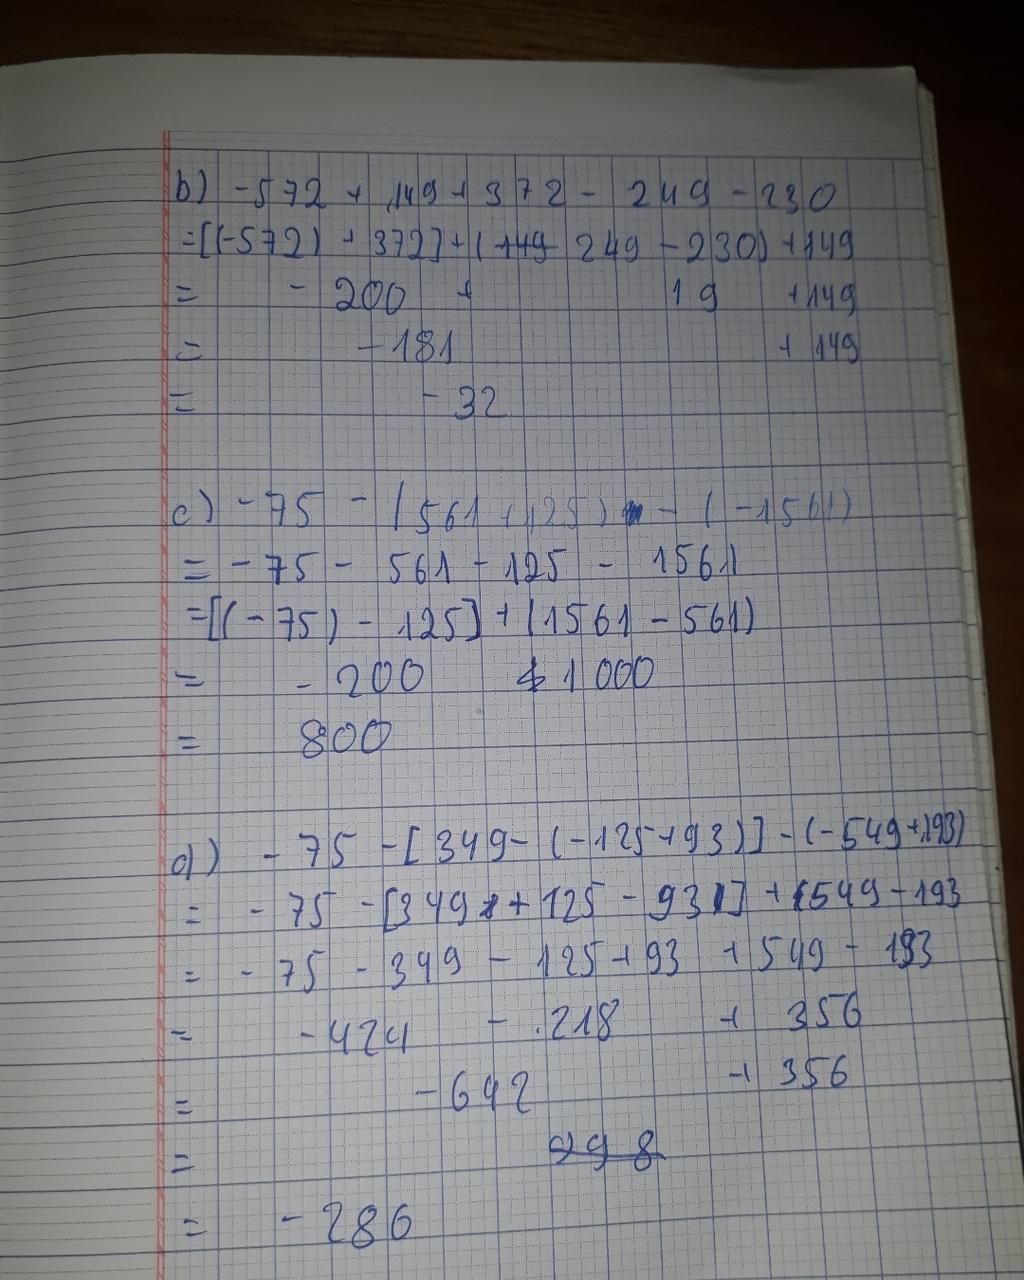 b) -572 + 149 + 372 - 249 - 230
= [(-572) + 372] + (149 249 - 230) + 149
= - 200 + 19 + 149
= - 181 + 149
= - 32
c) - 75 - (561 + 125) - (-1561)
= - 75 - 561 - 125 - 1561
= [(- 75) - 125] + (1561 - 561)
= - 200 + 1 000
= 800
d) - 75 - [349 - (-125 + 93)] - (-549 + 193)
= - 75 - [349 + 125 - 93] + (549 - 193
= - 75 - 349 - 125 + 93 + 549 - 193
= - 424 - 218 + 356
= - 642 + 356
= 298
= - 286